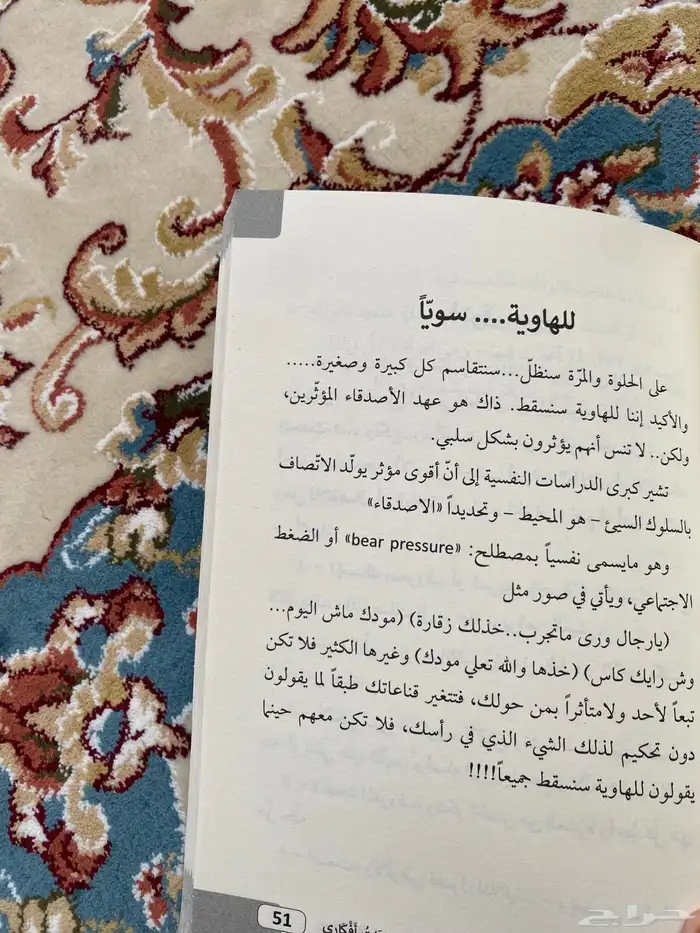 للهاوية.... سويّاً
على الحلوة والمرّة سنظلّ...سنتقاسم كل كبيرة وصغيرة.....
والأكيد إننا للهاوية سنسقط. ذاك هو عهد الأصدقاء المؤثّرين،
ولكن.. لا تنس أنهم يؤثرون بشكل سلبي.
تشير كبرى الدراسات النفسية إلى أنّ أقوى مؤثر يولّد الاتّصاف
بالسلوك السيئ - هو المحيط - وتحديداً «الاصدقاء»
وهو مايسمى نفسياً بمصطلح: «bear pressure» أو الضغط
الاجتماعي، ويأتي في صور مثل
(يارجال ورى ماتجرب..خذلك زقارة) (مودك ماش اليوم...
وش رايك كاس) (خذها والله تعلي مودك) وغيرها الكثير فلا تكن
تبعاً لأحد ولامتأثراً بمن حولك، فتتغير قناعاتك طبقاً لما يقولون
دون تحكيم لذلك الشيء الذي في رأسك، فلا تكن معهم حينما
يقولون للهاوية سنسقط جميعاً!!!!
51
أَفْكَارِي
حراج